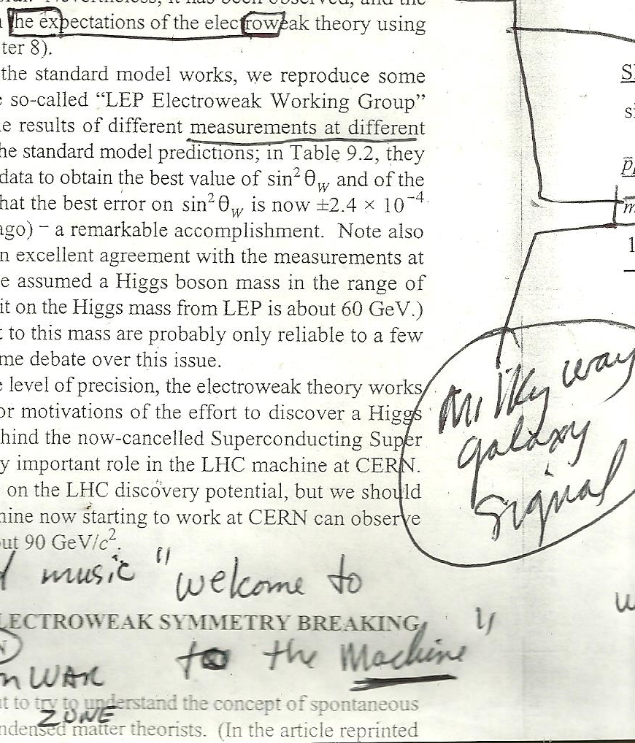 the expectations of the electroweak theory using
ter 8).
the standard model works, we reproduce some
so-called “LEP Electroweak Working Group”
e results of different measurements at different
he standard model predictions; in Table 9.2, they
data to obtain the best value of sin² θw and of the
hat the best error on sin² θw is now ±2.4 × 10⁻⁴
ago) – a remarkable accomplishment. Note also
n excellent agreement with the measurements at
e assumed a Higgs boson mass in the range of
it on the Higgs mass from LEP is about 60 GeV.)
t to this mass are probably only reliable to a few
me debate over this issue.
e level of precision, the electroweak theory works
or motivations of the effort to discover a Higgs
hind the now-cancelled Superconducting Super
y important role in the LHC machine at CERN.
on the LHC discovery potential, but we should
hine now starting to work at CERN can observe
out 90 GeV/c².
Milky way
galaxy
signal
music "welcome to
LECTROWEAK SYMMETRY BREAKING
to the Machine"
WAR
ZONE
t to try to understand the concept of spontaneous
ndensed matter theorists. (In the article reprinted